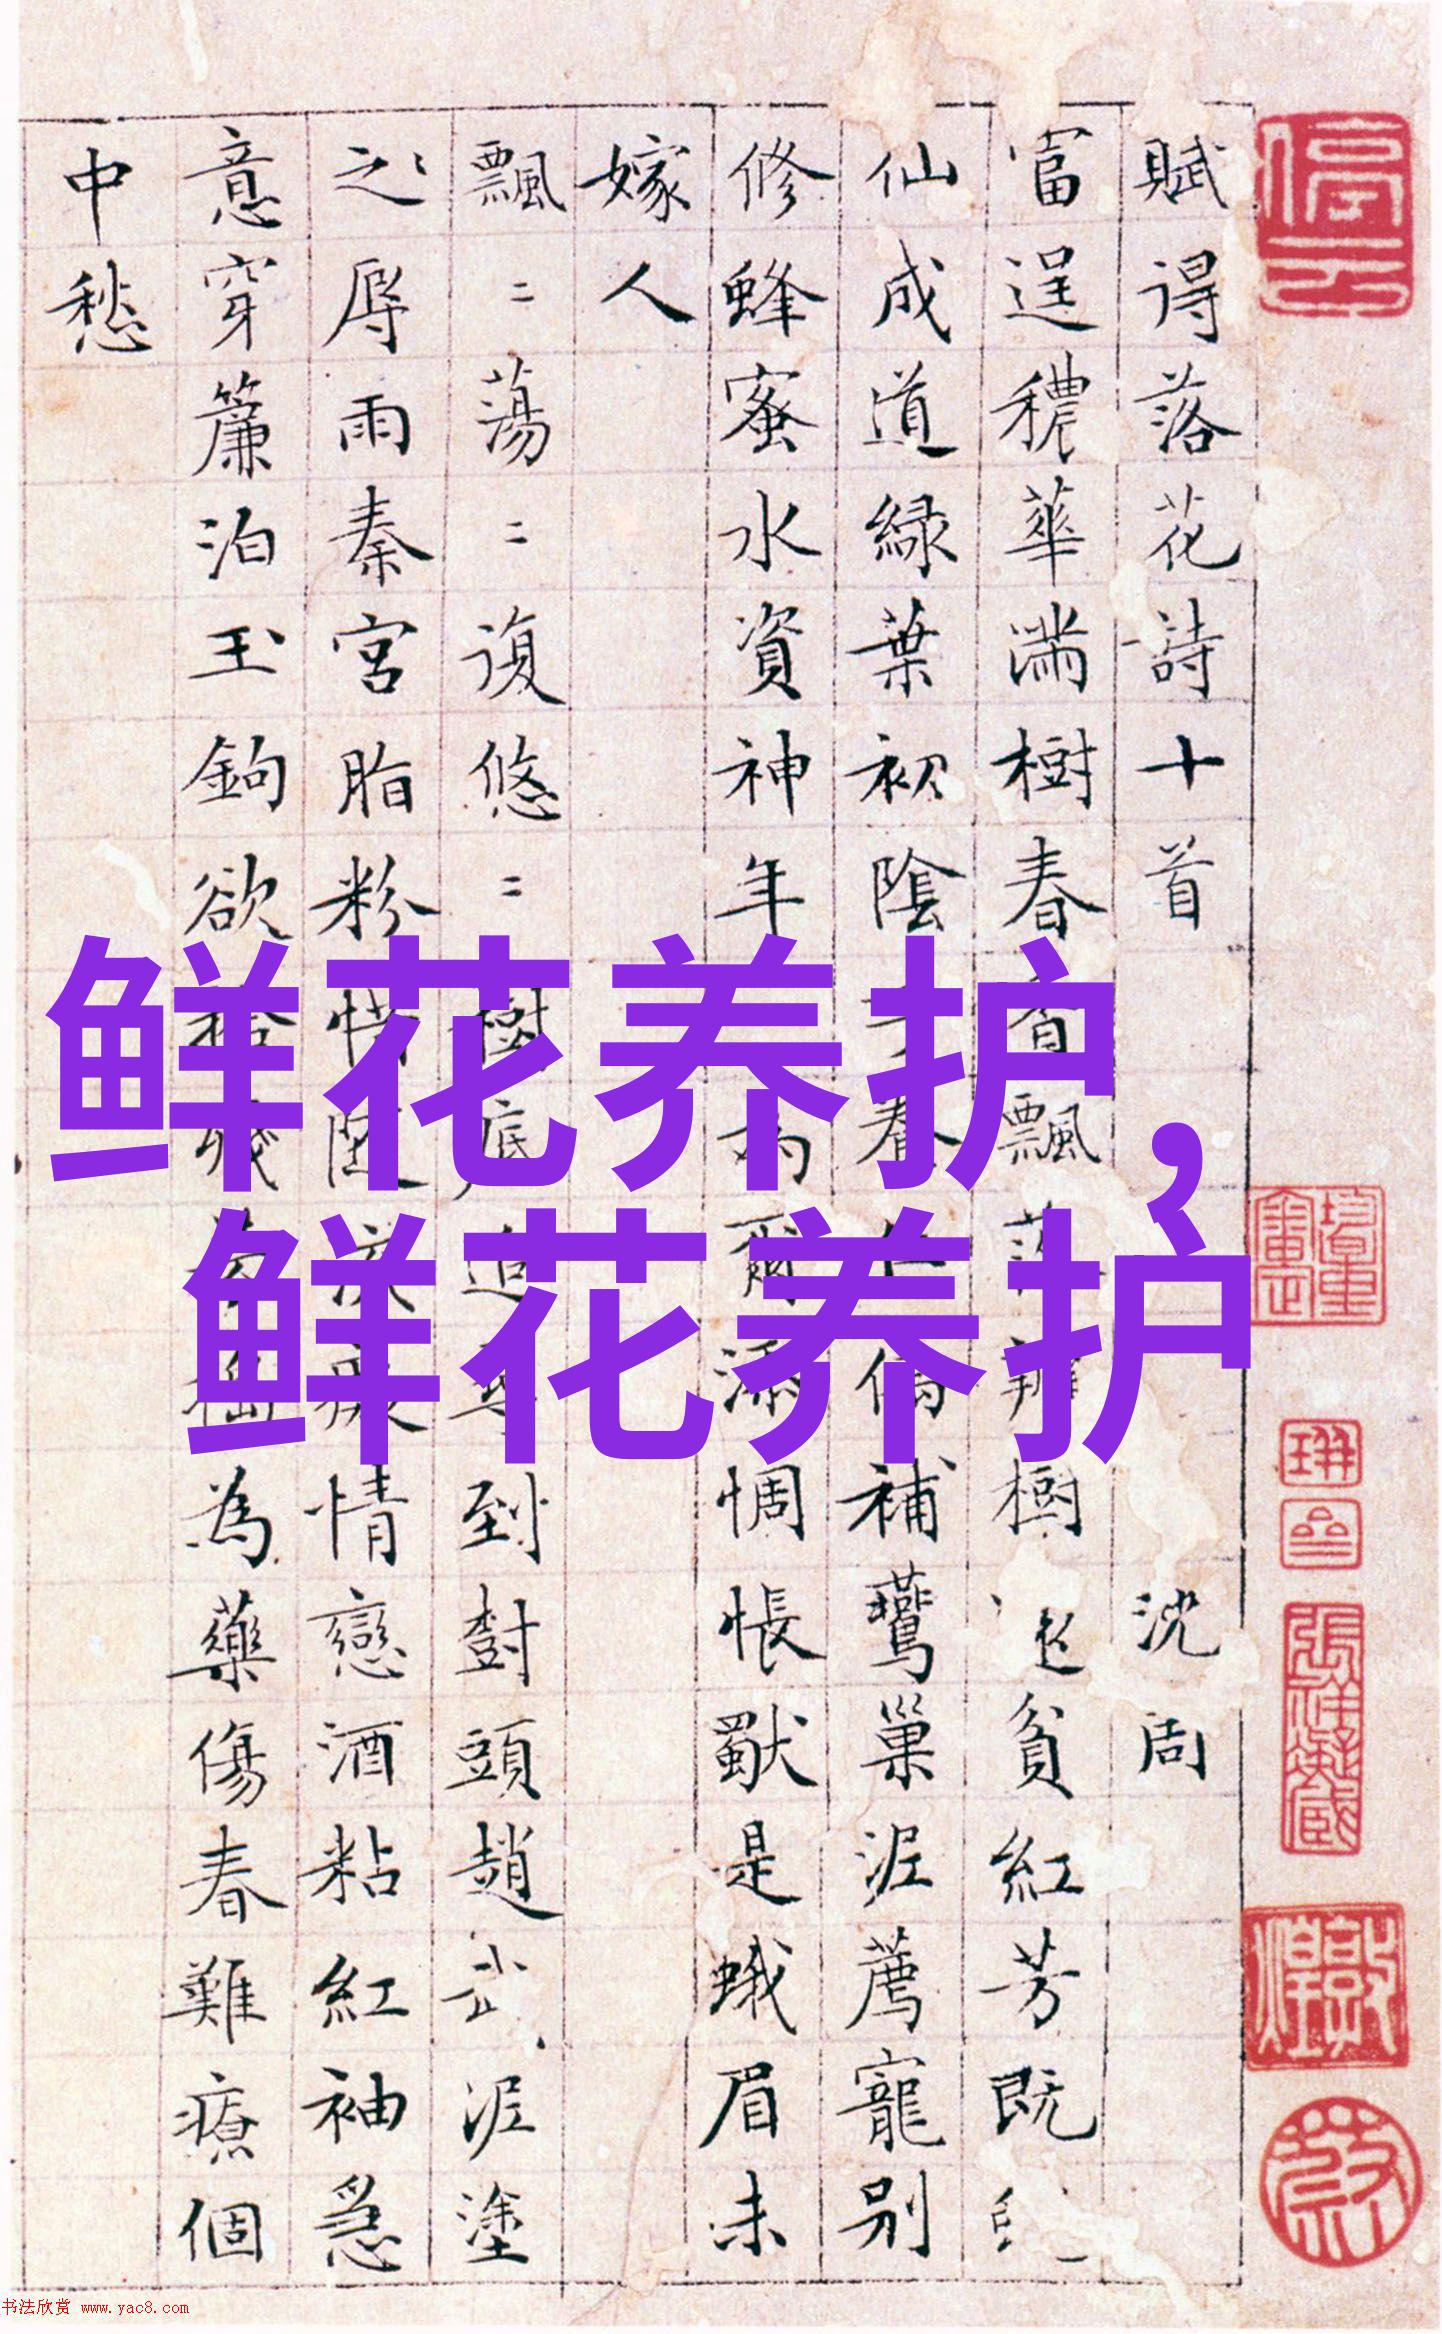 鲜花养护，
鲜花养护
賦得落花詩十首 沈周
富逞穠華滿樹春香飄樹貧紅芳既
仙成道綠葉初陰補鶯巢泥薦寵別
修蜂蜜水資神年爾添惆悵獸是蛾眉未
嫁人
飄=蕩=復悠=樹底追到樹頭趙武泥塗
之辱雨秦宮脂粉惜情戀酒粘紅袖急
意穿簾泊玉鉤欲拾殘為藥傷春難療個
中愁
书法欣赏 www.yac8.com